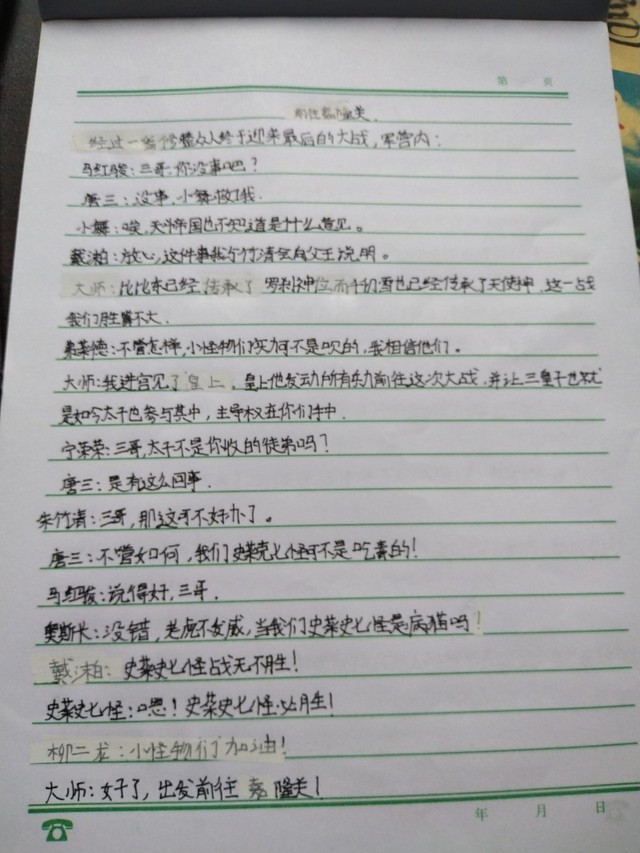 第 页
前往嘉隆关.
经过一番修整众人终于迎来最后的大战,军营内:
马红骏:三哥,你没事吧?
唐三:没事,小舞救了我.
小舞:唉,天斗帝国也不知道是什么意见。
戴沐白:放心,这件事我与竹清会向父王说明。
大师:比比东已经传承了罗刹神位而千仞雪也已经传承了天使神,这一战
我们胜算不大.
弗莱德:不管怎样,小怪物们实力可不是吹的,我相信他们。
大师:我进宫见了皇上,皇上他发动所有东力前往这次大战,并让三皇子也就
是如今太子也参与其中,主导权在你们手中.
宁荣荣:三哥,太子不是你收的徒弟吗?
唐三:是有这么回事.
朱竹清:三哥,那这可不好办了。
唐三:不管如何,我们史莱克七怪可不是吃素的!
马红骏:说得好,三哥.
奥斯卡:没错,老虎不发威,当我们史莱史七怪是病猫吗!
戴沐白:史莱史七怪战无不胜!
史莱史七怪:嗯!史莱史七怪必胜!
柳二龙:小怪物们加油!
大师:好了,出发前往嘉隆关!
年 月 日